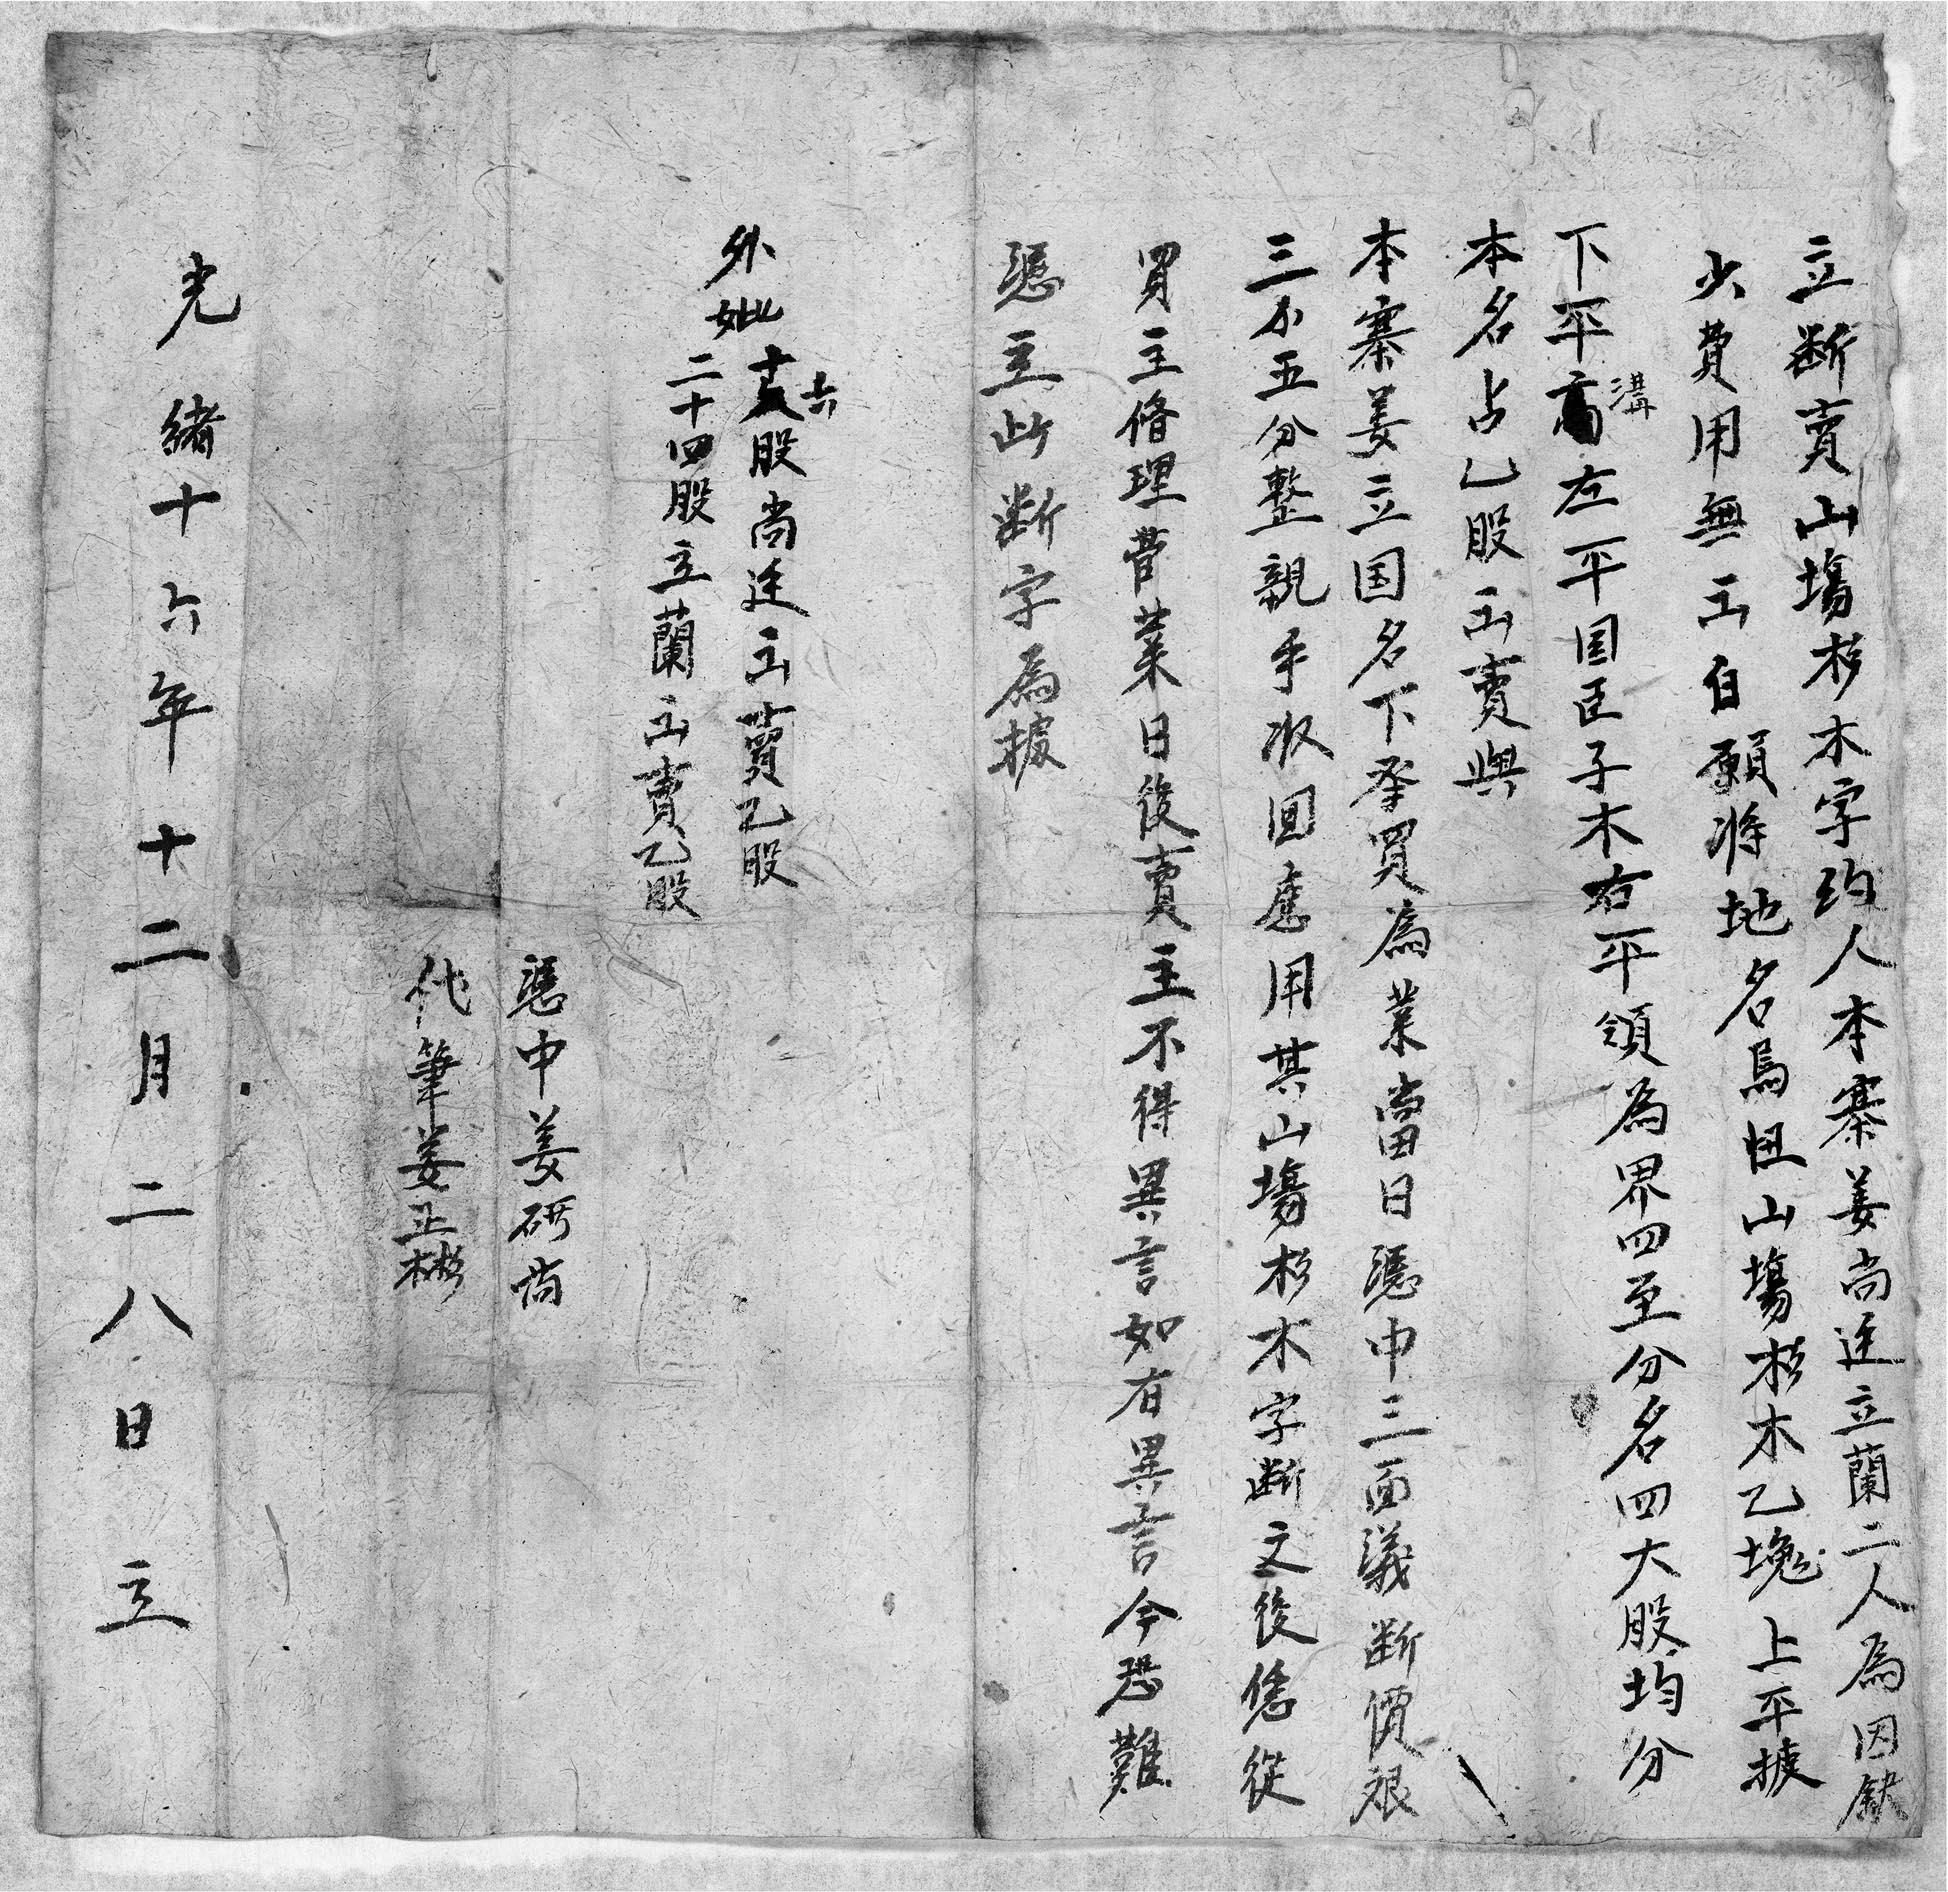 立断賣山塲杉木字約人本寨姜尚廷立蘭二人為因缺
少費用無出自願将地名烏扭山塲杉木乙塊上平
下平溝左平国臣子木右平領為界四至分名四大股均分
本名占乙股出賣與
本寨姜立国名下承買為業當日憑中三面議断價銀
三分五分整親手收回應用其山塲杉木字断之後凭從
買主修理菅業日後賣主不得異言如有異言今恐難
憑立此断字為據
外妣
十六股尚廷出賣乙股
二十四股立蘭出賣乙股
憑中姜研尚
代筆姜正彬
光緒十六年十二月二八日立